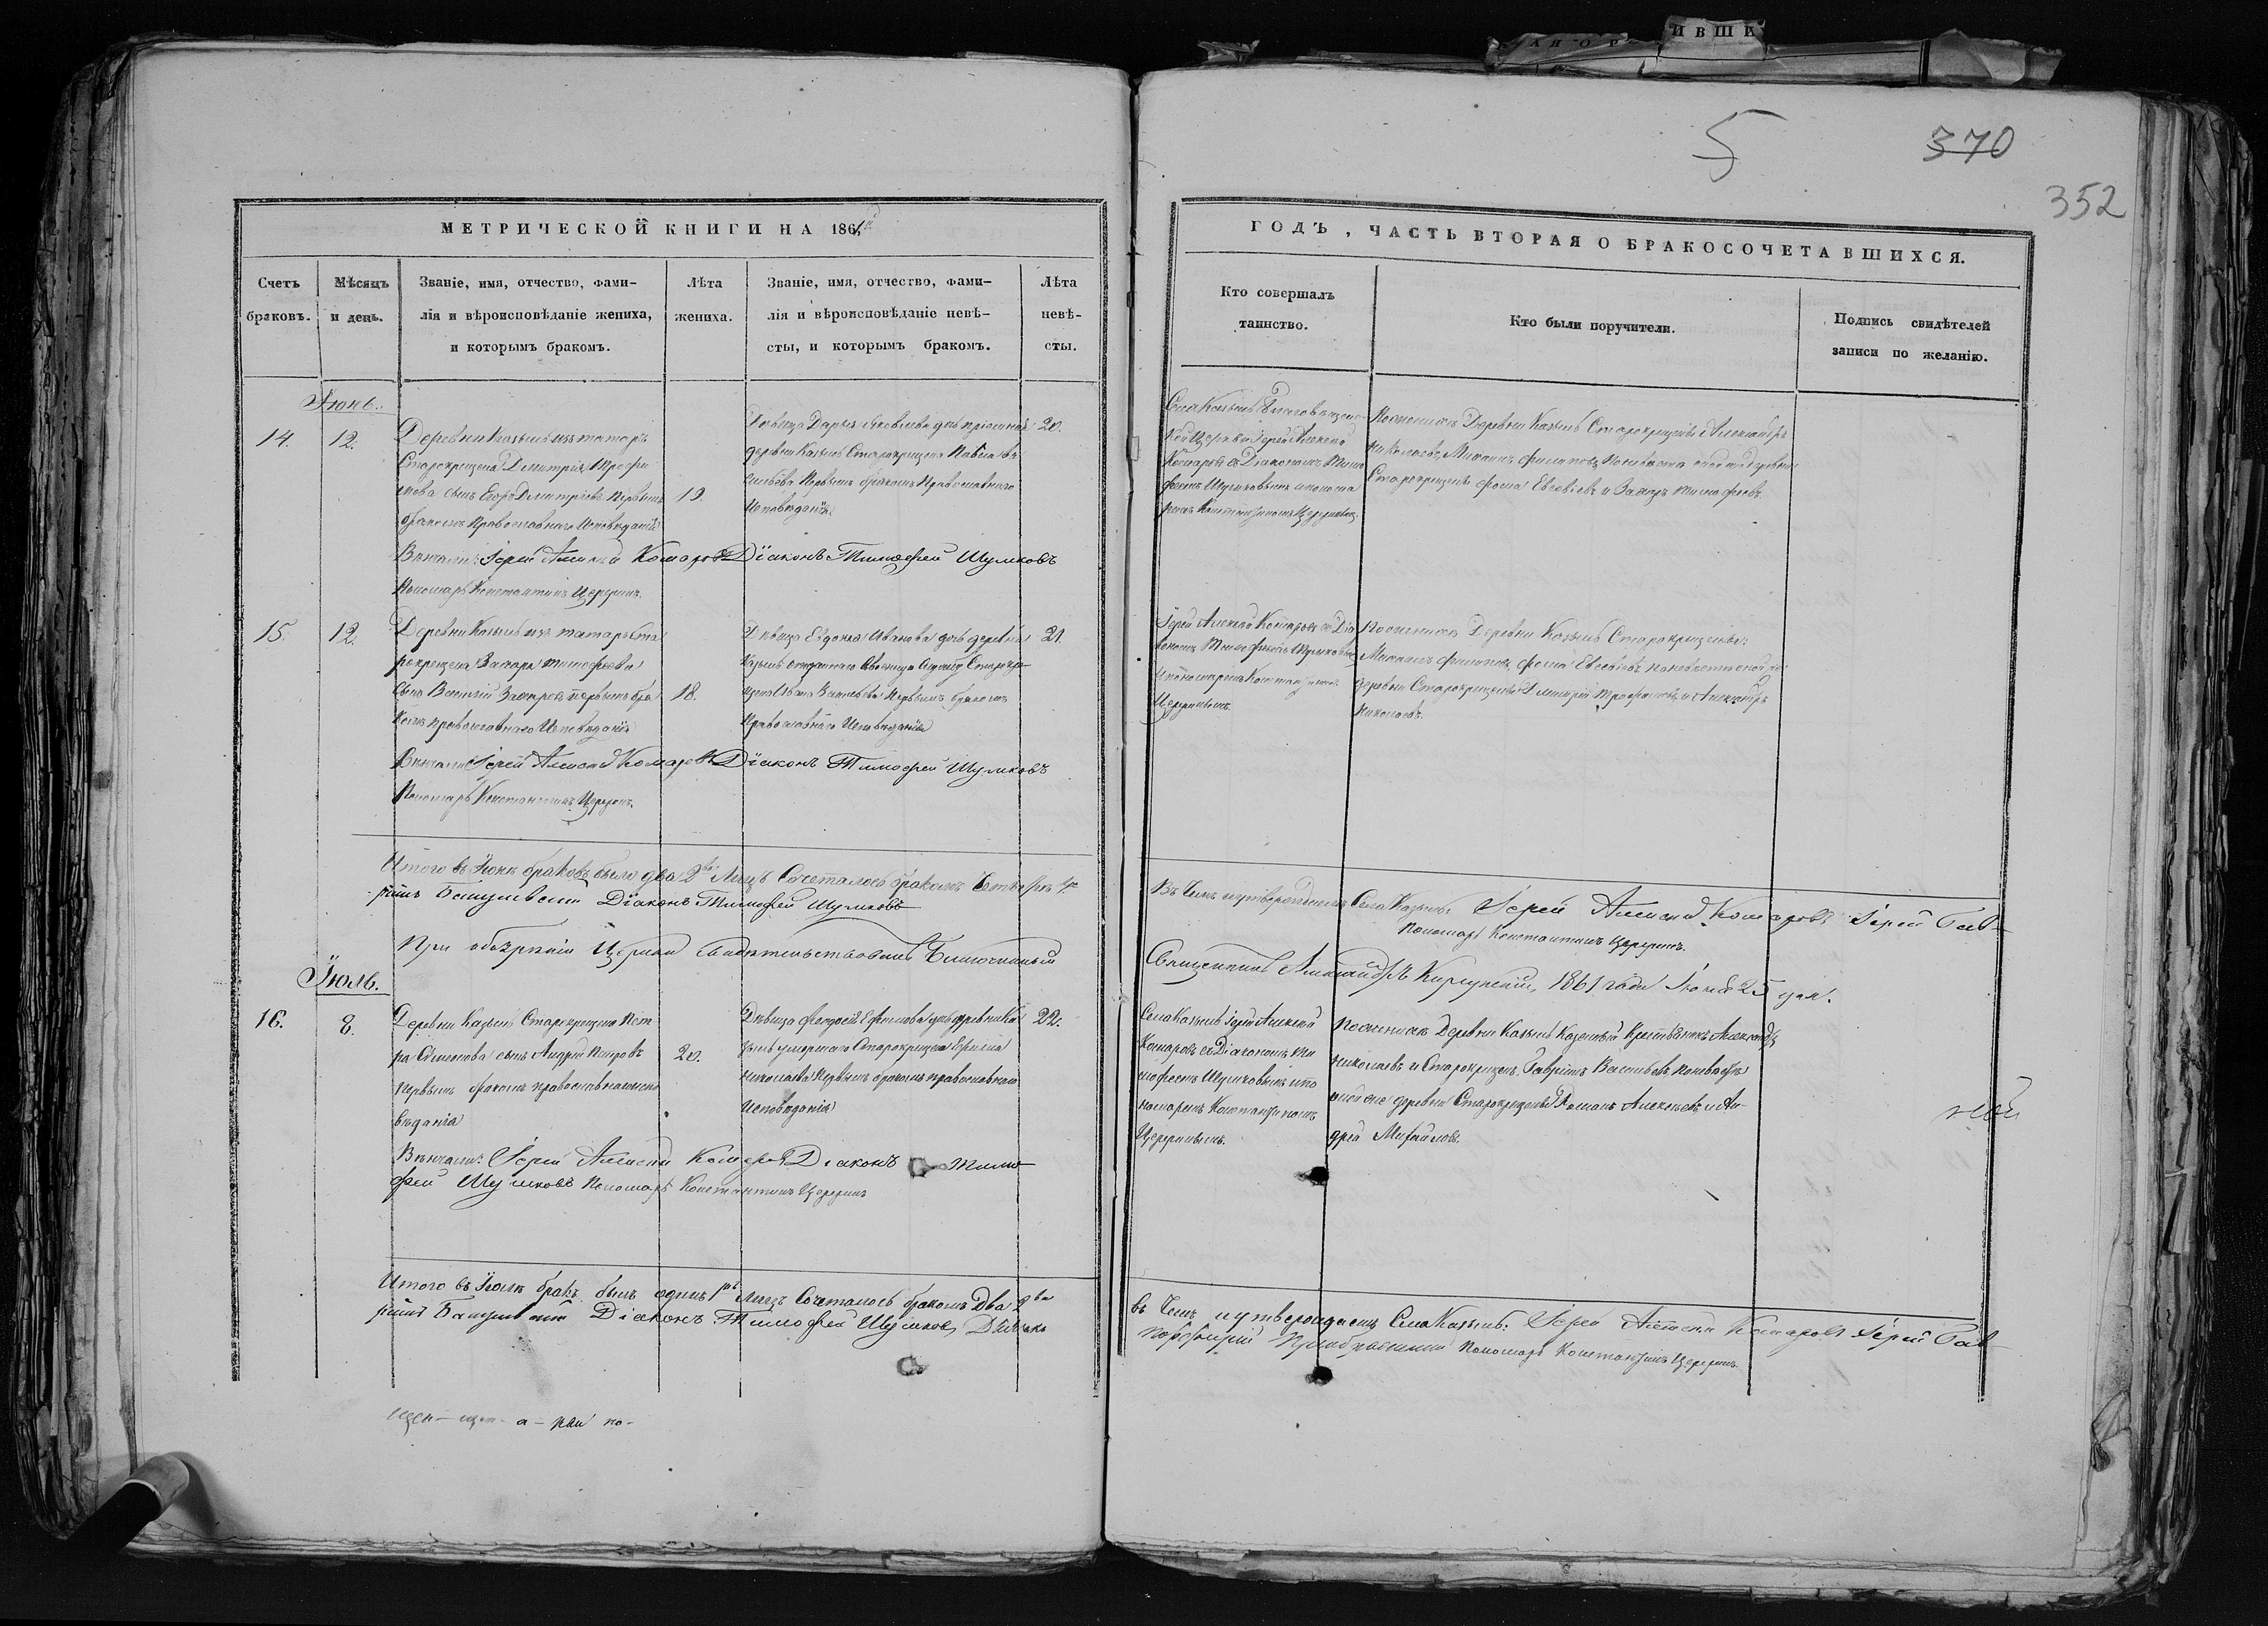 ИВШИ
5
370
352
МЕТРИЧЕСКОЙ КНИГИ НА 1861й
Счетъ браковъ.
Мѣсяцъ и день.
Званіе, имя, отчество, фами-
лія и вѣроисповѣданіе жениха,
и которымъ бракомъ.
Лѣта жениха.
Званіе, имя, отчество, фами-
лія и вѣроисповѣданіе невѣ-
сты, и которымъ бракомъ.
Лѣта невѣ-
сты.
Іюнь.
14.
12.
Деревни Казыль изъ татаръ
Старокрещена Димитрія Трофи
мова сынъ Егоръ Димитріевъ первымъ
бракомъ Православнаго Исповѣданія
19.
Дѣвица Дарья Яковлева дочь
деревни Казыль Старокрещена Павла Ва
сильева Первымъ бракомъ Православнаго
Исповѣданія
20.
Вѣнчали: Іерей Алексей Комаровъ Діаконъ Тимофей Шумковъ
Пономарь Константинъ Церерин
15.
12.
Деревни Казыль изъ татаръ Ста
рокрещена Захара Тимофеева
Сынъ Василій Захаровъ первымъ бра
комъ православнаго Исповѣданія
18.
Дѣвица Евдокья Иванова дочь деревни
Казыль Старокре
щена Ивана Васильева Первымъ бракомъ
Православнаго Исповѣданія
21.
Вѣнчали Іерей Алексей Комаровъ Діаконъ Тимофей Шумковъ
Пономарь Константинъ
Итого въ Іюнѣ браковъ было два 2ва Лицъ Сочеталось бракомъ Четыре 4ре
Діаконъ Тимофей Шумковъ
При обозрѣніи Церкви Свидѣтельствовалъ Благочинный
Іюль.
16.
8.
Деревни Казыль Старокрещена Пет
ра Симонова сынъ Андрей Петровъ
первымъ бракомъ православнаго испо
вѣданія
20.
Дѣвица Ефимова дочь деревни Ка
зыль умершаго Старокрещена Ефима
Николаева Первымъ бракомъ православнаго
Исповѣданія
22.
Вѣнчали: Іерей Алексей Комаровъ Діаконъ Тимо
фей Шумковъ Пономарь Константинъ
Итого въ Іюлѣ бракъ былъ одинъ Лицъ Сочеталось бракомъ Два 2ва
Діаконъ Тимофей Шумковъ
ГОДЪ, ЧАСТЬ ВТОРАЯ О БРАКОСОЧЕТАВШИХСЯ.
Кто совершалъ
таинство.
Кто были поручители.
Подпись свидѣтелей
записи по желанію.
Села Казыль Благовѣщенс
кой Церкви Іерей Алексей
Комаровъ съ Діакономъ Тимо
феемъ Шумковымъ и понома
ремъ Константиномъ
По женихѣ Деревни Казыль Старокрещены Александръ
Николаевъ, Михаилъ Филиповъ, По невѣстѣ деревни
Старокрещены Фома Евсевіевъ и Захаръ Тимофеевъ.
Іерей Алексей Комаровъ съ Діа
кономъ Тимофеемъ Шумковымъ
и пономаремъ Константиномъ
По женихѣ Деревни Казыль Старокрещены:
Михаилъ Филиповъ, Фома Евсевіевъ по невѣстѣ
деревни Старокрещены Димитрій Трофимовъ и Александръ
Николаевъ.
Въ Чемъ и утверждаемъ Села Казыль: Іерей Алексей Комаровъ Іерей Гав-
Пономарь Константинъ
Священникъ 1861 года Іюня 25 дня.
Села Казыль Іерей Алексей
Комаровъ съ Діакономъ Ти
мофеемъ Шумковымъ и по
номаремъ Константиномъ
По женихѣ Деревни Казыль Казенный Крестьянинъ Александръ
Николаевъ и Старокрещенъ Гаврилъ Васильевъ по невѣстѣ
деревни Старокрещены Романъ Алексеевъ и Ан-
дрей Михайловъ.
въ Чемъ и утверждаемъ Села Казыль: Іерей Алексей Комаровъ Іерей Гав-
Пономарь Константинъ